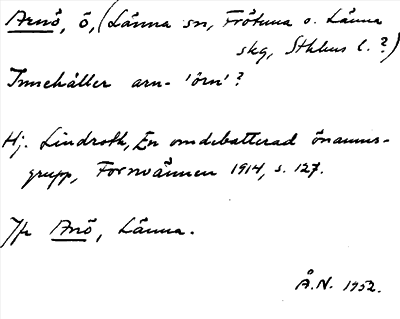 Arnö, ö, (Länna sn, Frötuna o. Länna
skg, Sthlms l. ?)
Innehåller arn- 'örn'?
Hj. Lindroth, En omdebatterad önamns-
grupp, Fornvännen 1914, s. 127.
Jfr Anö, Länna.
Å.N. 1952.